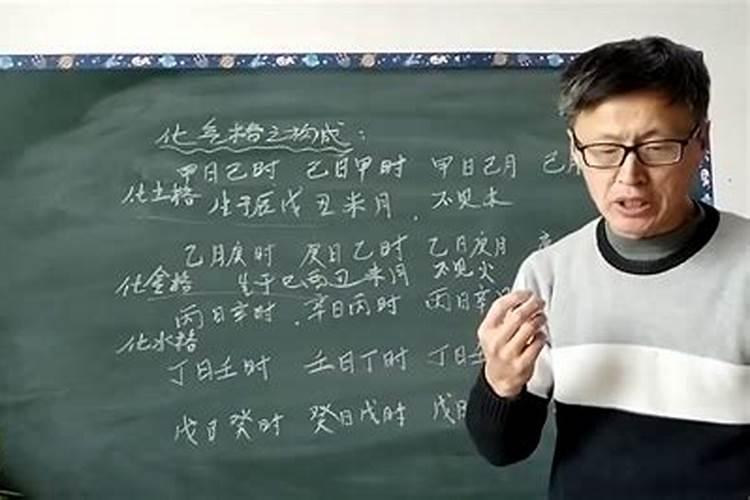 化气格之构成：
甲日己时 己日甲时 甲日己月 己
化土格 生于辰戌丑未月，不见木
乙日庚时 庚日乙时 乙日庚月
化金格 生于巳酉丑 月 不见火
丙日辛时．辛日丙时 丙日辛
化水格
丁日壬时 壬日丁时 丁日
戊日癸时 癸日戊时 戊日